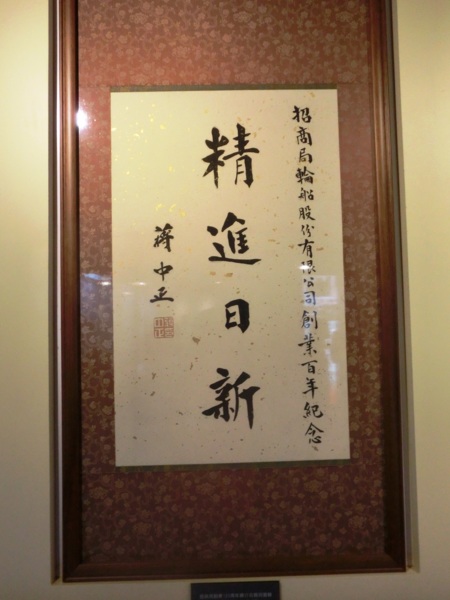 招商局輪船股份有限公司創業百年紀念
精進日新
蔣中正